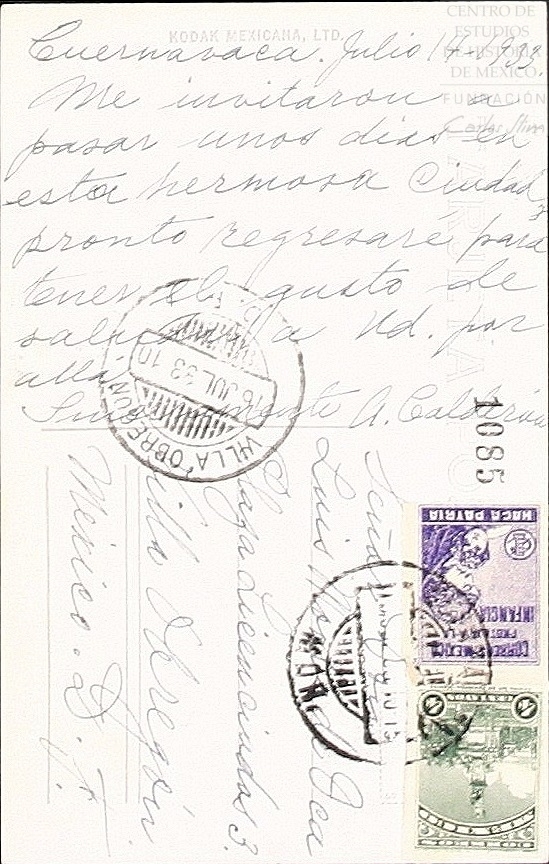 KODAK MEXICANA, LTD.
CENTRO DE
ESTUDIOS
DE HISTORIA
DE MEXICO
FUNDACIÓN
Carlos Slim
Cuernavaca. Julio 14-1933.
Me invitaron a
pasar unos dias en
esta hermosa Ciudad,
pronto regresaré para
tener el gusto de
saludar a Ud. por
allá.
A. Calderón
1085
VILLA OBREGON
16 JUL 33 10
Señor
Luis
Plaza Licenciados 3.
Villa Obregón.
Mexico. D. F.
HAGA PATRIA
INFANCIA